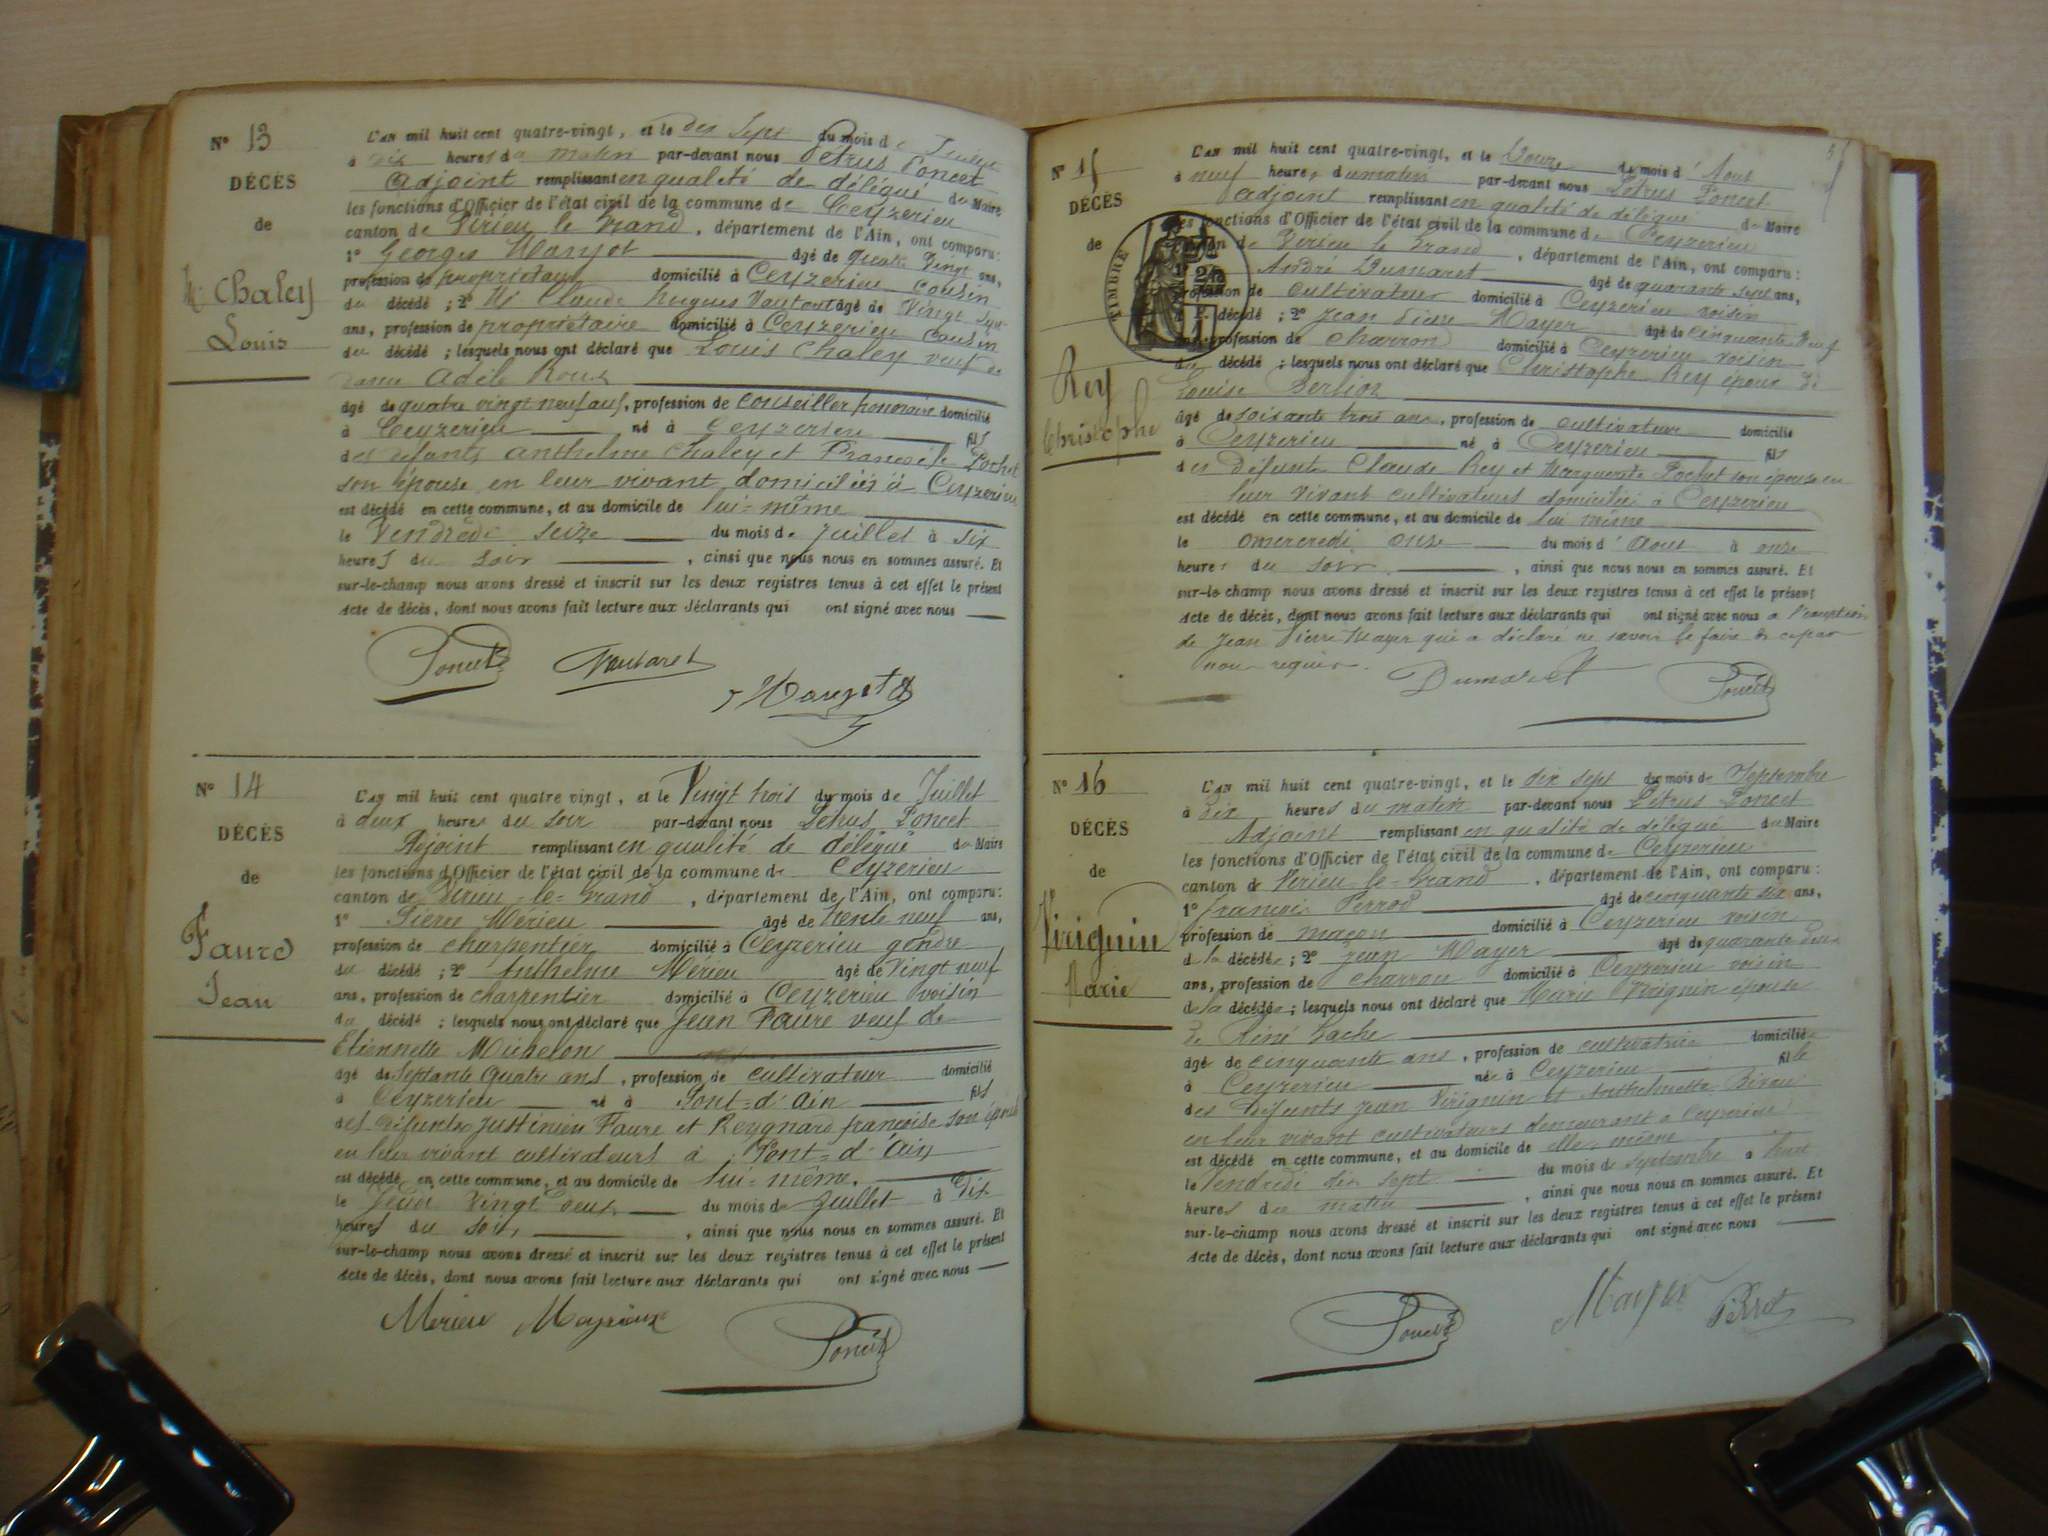 N° 13
DÉCÈS
de
Chaley
Louis
L'AN mil huit cent quatre-vingt, et le dix sept du mois de Juillet
à dix heures du matin par-devant nous Pétrus Poncet
Adjoint remplissant en qualité de délégué du Maire
les fonctions d'Officier de l'état civil de la commune de Ceyzerieu
canton de Virieu le Grand, département de l'Ain, ont comparu:
1° Georges Manjot âgé de quatre Vingt ans,
profession de propriétaire domicilié à Ceyzerieu cousin
du décédé ; 2° Claude hugues Vautaret âgé de Vingt sept
ans, profession de propriétaire domicilié à Ceyzerieu cousin
du décédé ; lesquels nous ont déclaré que Louis Chaley veuf de
dame Adèle Roux
âgé de quatre vingt neuf ans, profession de conseiller honoraire domicilié
à Ceyzerieu né à Ceyzerieu fils
des défunts Anthelme Chaley et Françoise Pochet
son épouse en leur vivant domiciliés à Ceyzerieu
est décédé en cette commune, et au domicile de lui-même
le Vendredi seize du mois de Juillet à six
heures du soir, ainsi que nous nous en sommes assuré. Et
sur-le-champ nous avons dressé et inscrit sur les deux registres tenus à cet effet le présent
Acte de décès, dont nous avons fait lecture aux déclarants qui ont signé avec nous
Poncet Vautaret
Manjot
N° 14
DÉCÈS
de
Faure
Jean
L'AN mil huit cent quatre vingt, et le Vingt trois du mois de Juillet
à deux heures du soir par-devant nous Petrus Poncet
Adjoint remplissant en qualité de délégué du Maire
les fonctions d'Officier de l'état civil de la commune de Ceyzerieu
canton de Virieu-le-Grand, département de l'Ain, ont comparu:
1° Pierre Mérieu âgé de trente neuf ans,
profession de charpentier domicilié à Ceyzerieu gendre
du décédé ; 2° Anthelme Mérieu âgé de Vingt neuf
ans, profession de charpentier domicilié à Ceyzerieu voisin
du décédé ; lesquels nous ont déclaré que Jean Faure veuf de
Etiennette Michelon
âgé de Septante Quatre ans, profession de cultivateur domicilié
à Ceyzerieu né à Pont-d'Ain fils
des défunts Justinien Faure et Reygnard françoise son épouse
en leur vivant cultivateurs à Pont-d'Ain
est décédé en cette commune, et au domicile de lui-même.
le Jeudi Vingt deux du mois de Juillet à Dix
heures du soir, ainsi que nous nous en sommes assuré. Et
sur-le-champ nous avons dressé et inscrit sur les deux registres tenus à cet effet le présent
Acte de décès, dont nous avons fait lecture aux déclarants qui ont signé avec nous
Poncet
N° 15
DÉCÈS
de
Rey
Christophe
TIMBRE
L'AN mil huit cent quatre-vingt, et le Douze du mois d'Aout
à neuf heures du matin par-devant nous Pétrus Poncet
adjoint remplissant en qualité de délégué du Maire
les fonctions d'Officier de l'état civil de la commune de Ceyzerieu
canton de Virieu le Grand, département de l'Ain, ont comparu:
André Dumaret âgé de quarante sept ans,
profession de cultivateur domicilié à Ceyzerieu voisin
décédé ; 2° Jean Pierre Mayer âgé de cinquante neuf
ans, profession de charron domicilié à Ceyzerieu voisin
du décédé ; lesquels nous ont déclaré que Christophe Rey époux de
Louise Berlioz
âgé de soixante trois ans, profession de cultivateur domicilié
à Ceyzerieu né à Ceyzerieu fils
des Défunts Claude Rey et Marguerite Pochet son épouse en
leur Vivant cultivateurs domiciliés à Ceyzerieu
est décédé en cette commune, et au domicile de lui même
le mercredi onze du mois d'Aout à onze
heures du soir, ainsi que nous nous en sommes assuré. Et
sur-le-champ nous avons dressé et inscrit sur les deux registres tenus à cet effet le présent
Acte de décès, dont nous avons fait lecture aux déclarants qui ont signé avec nous a l'exception
de Jean Pierre Mayer qui a déclaré ne savoir le faire de ce par
nous requis.
Dumaret Poncet
N° 16
DÉCÈS
de
Virignin
Marie
L'AN mil huit cent quatre-vingt, et le dix sept du mois de Septembre
à Dix heures du matin par-devant nous Petrus Poncet
Adjoint remplissant en qualité de délégué du Maire
les fonctions d'Officier de l'état civil de la commune de Ceyzerieu
canton de Virieu-le-Grand, département de l'Ain, ont comparu:
1° François Perrod âgé de cinquante six ans,
profession de maçon domicilié à Ceyzerieu voisin
de la décédée ; 2° Jean Mayer âgé de quarante deux
ans, profession de charron domicilié à Ceyzerieu voisin
de la décédée ; lesquels nous ont déclaré que Marie Virignin épouse
de Réné
âgé de cinquante ans, profession de cultivatrice domiciliée
à Ceyzerieu née à Ceyzerieu fille
des Défunts Jean Virignin et Anthelmette
en leur vivant cultivateurs demeurant à Ceyzerieu
est décédé en cette commune, et au domicile de elle-même
le Vendredi dix sept du mois de septembre a
heures du matin, ainsi que nous nous en sommes assuré. Et
sur-le-champ nous avons dressé et inscrit sur les deux registres tenus à cet effet le présent
Acte de décès, dont nous avons fait lecture aux déclarants qui ont signé avec nous
Poncet Mayer Perrod